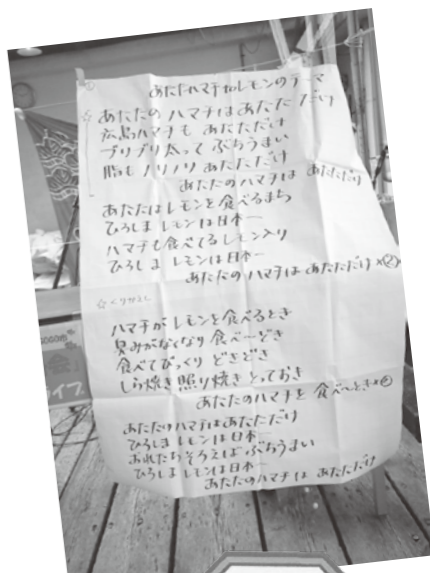 あたたハマチtoレモンのテーマ
☆あたたのハマチはあたただけ
広島ハマチも あたただけ
ブリブリ太って ぶちうまい
脂もノリノリ あたただけ
あたたのハマチは あたただけ
あたたはレモンを食べるまち
ひろしまレモンは日本一
ハマチも食べてるレモン入り
ひろしまレモンは日本一
あたたのハマチは あたただけ ×②
☆くりかえし
ハマチがレモンを食べるとき
臭みがなくなり 食べーどき
食べてびっくり どきどき
しら焼き照り焼き とっておき
あたたのハマチを 食べーどき×②
あたたのハマチはあたただけ
ひろしまレモンは日本一
おれたちそろえば ぶちうまい
ひろしまレモンは日本一
あたたのハマチは あたただけ
イブ